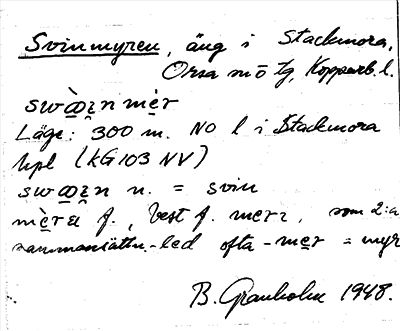 Svinmyren, äng i Stackmora,
Orsa sn ö tg, Kopparb. l.
swæ̀ᶖn mèr
Läge: 300 m. NO l i Stackmora
hpl (KG 103 NV)
n. = svin
f., best f. som 2:a
sammansättn.-led ofta -mer = myr
B. Granholm 1948.